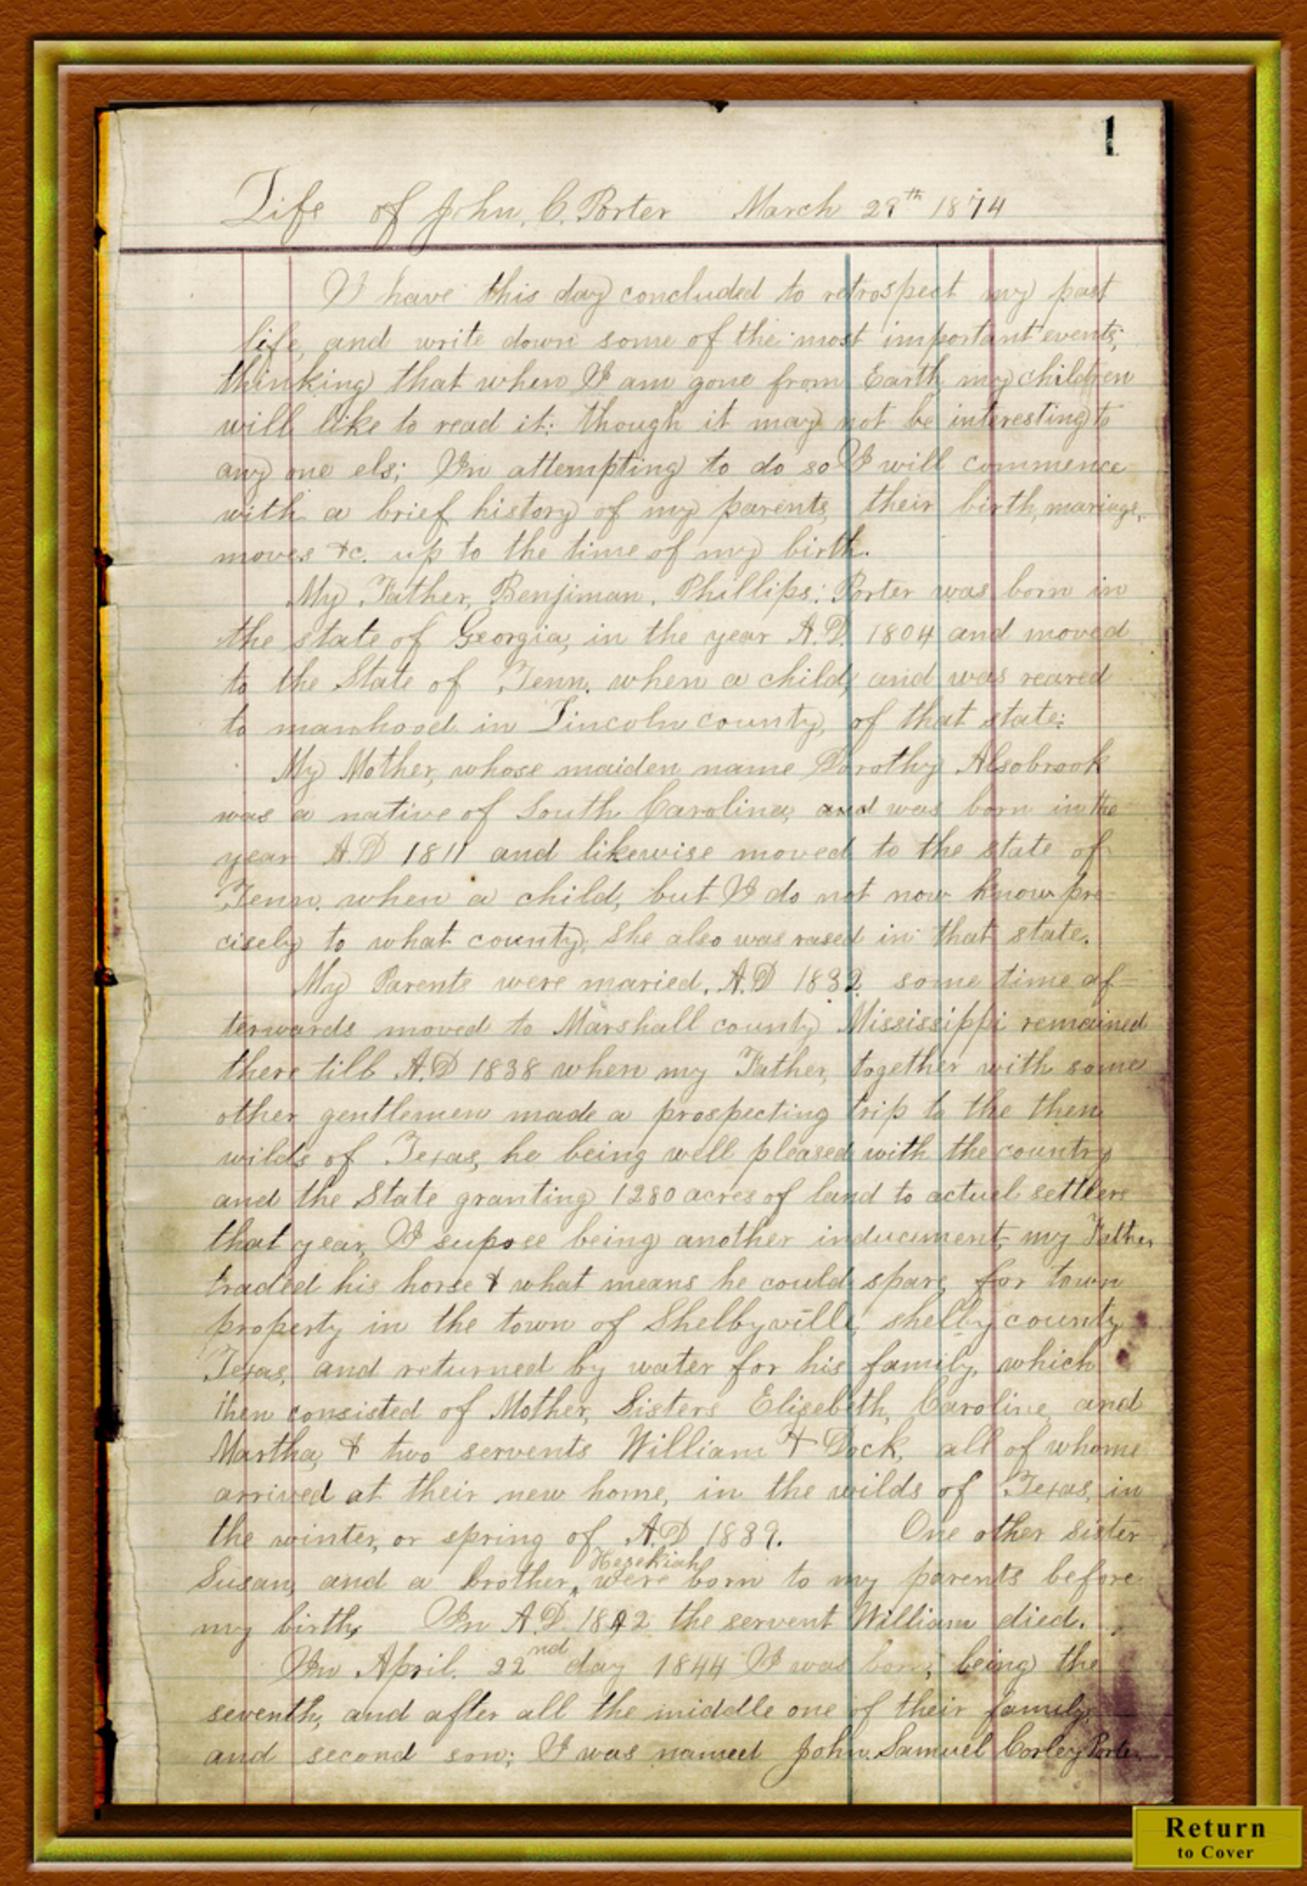 1
Life of John, C. Porter March 29th 1874
I have this day concluded to retrospect my past
life, and write down some of the most important events;
thinking that when I am gone from Earth my children
will like to read it: though it may not be interesting to
any one els; In attempting to do so I will commence
with a brief history of my parents, their birth, mariage,
moves &c. up to the time of my birth.
My Father, Benjiman. Phillips: Porter was born in
the state of Georgia, in the year A.D. 1804 and moved
to the State of Tenn. when a child, and was reared
to manhood in Lincoln county, of that state:
My Mother, whose maiden name Dorothy Alsobrook
was a native of South Carolina, and was born in the
year A.D 1811 and likewise moved to the state of
Tenn. when a child, but I do not now know pre-
cisely to what county, she also was rased in that state.
My Parents were maried. A.D 1832 some time af-
terwards moved to Marshall county Mississippi remained
there till A.D 1838 when my Father, together with some
other gentlemen made a prospecting trip to the then
wilds of Texas, he being well pleased with the country
and the State granting 1280 acres of land to actuel settlers
that year, I supose being another inducement, my Father
traded his horse & what means he could spare for town
property in the town of Shelbyville, shelby county
Texas, and returned by water for his family, which
then consisted of Mother, Sisters Elisebeth, Caroline, and
Martha, & two servents William & Dock, all of whome
arrived at their new home, in the wilds of Texas, in
the winter, or spring of A.D 1839. One other sister
Susan, and a brother, Hezekiah were born to my parents before
my birth, In A.D. 1842 the servent William died.
In April. 22nd day 1844 I was born, being the
seventh, and after all the middle one of their family,
and second son; I was named John. Samuel Corley Porter.
Return
to Cover